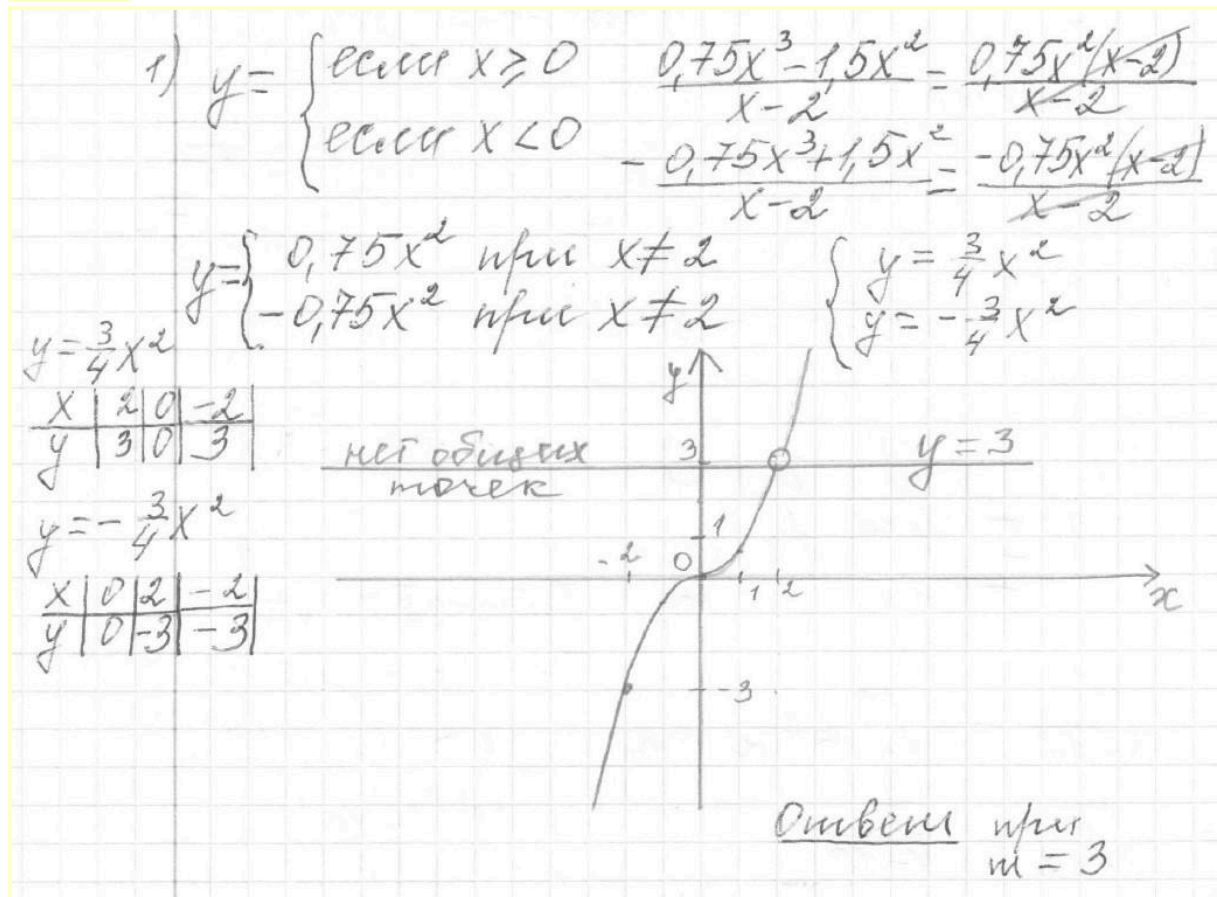 1) y = { если x ⩾ 0 (0,75x³ − 1,5x²)/(x − 2) = (0,75x²(x−2))/(x−2)
если x < 0 −(0,75x³ + 1,5x²)/(x − 2) = (−0,75x²(x−2))/(x − 2)
y = { 0,75x² при x ≠ 2
−0,75x² при x ≠ 2
{ y = 3/4 x²
y = −3/4 x²
y = 3/4 x²
x | 2 | 0 | −2 |
y | 3 | 0 | 3 |
y = −3/4 x²
x | 0 | 2 | −2 |
y | 0 | −3 | −3 |
y
нет общих
точек
3
y = 3
1
−2
0
1
2
x
−3
Ответ при
m = 3